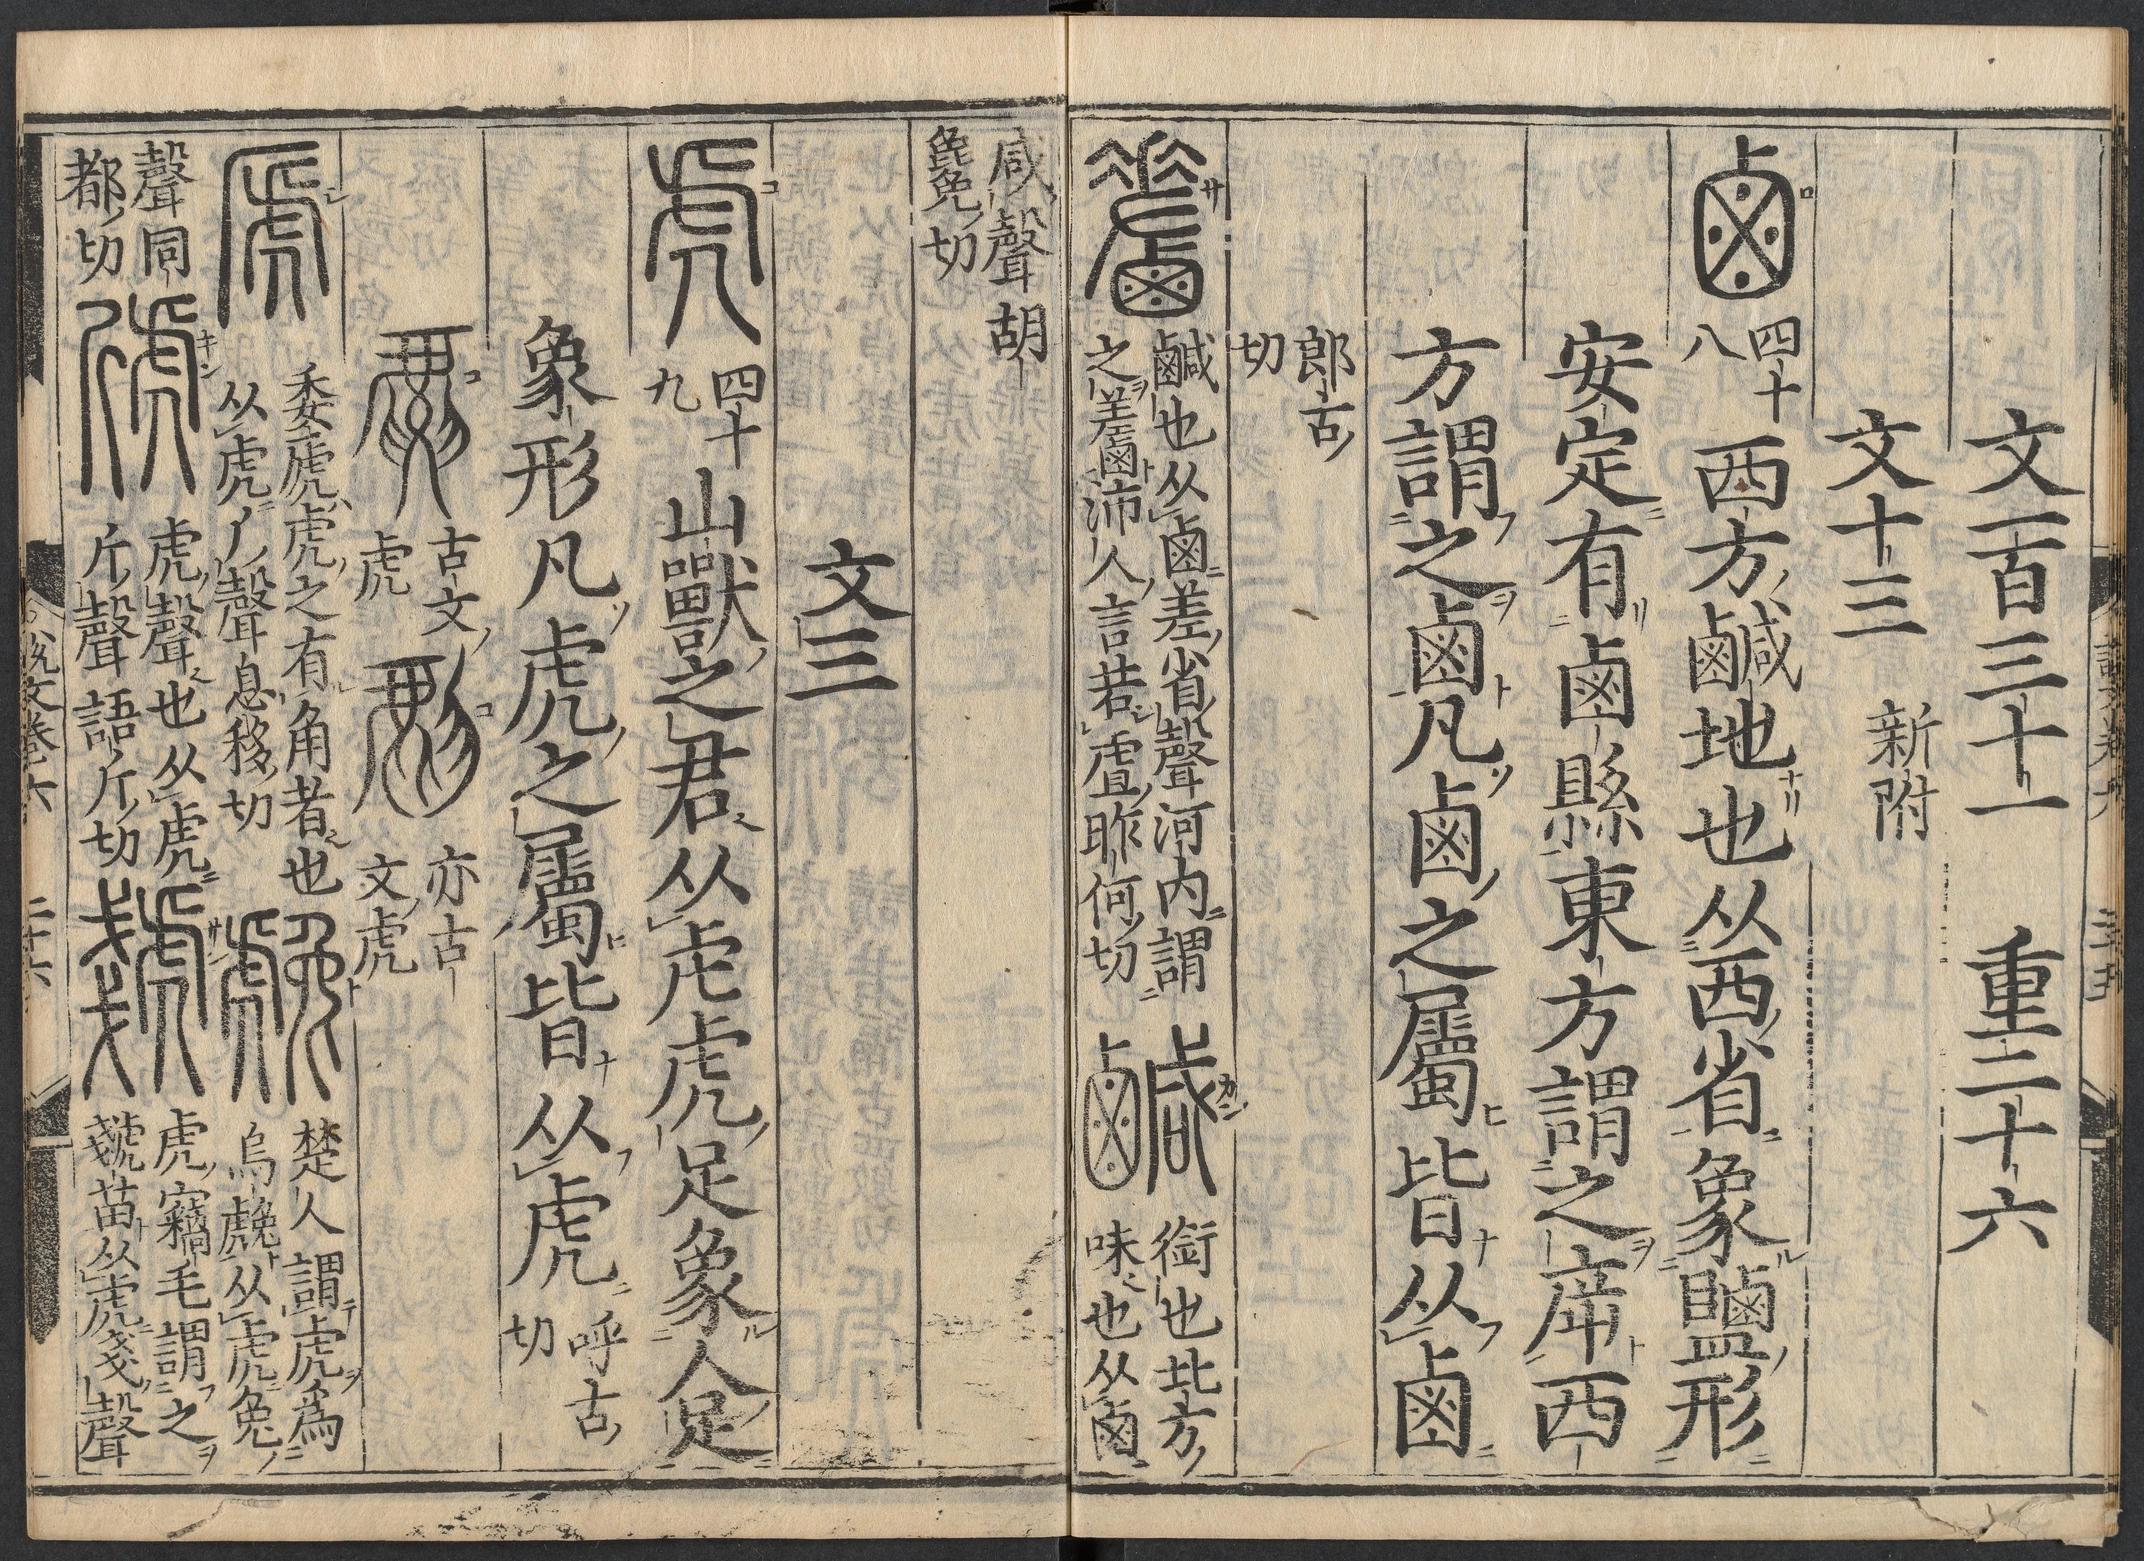 文一百三十一 重三十六
文十三 新附
鹵 四十八 西方鹹地也从西省象鹽形
安定有鹵縣東方謂之㡿西
方謂之鹵凡鹵之屬皆从鹵
郎古切
鹹也从鹵差省聲河内謂
之䴾沛人言若虘昨何切
鹹 銜也北方
味也从鹵
咸聲胡
毚切
文三
虎 四十九 山獸之君从虍虎足象人足
象形凡虎之屬皆从虎 呼古切
古文虎 亦古文虎
委虒虎之有角者也
从虎厂聲息移切
楚人謂虎爲
烏䖘从虎兔
聲同
都切
虎聲也从虎
斤聲語斤切
虎竊毛謂之
虥苗从虎戔聲
說文卷六 二十六